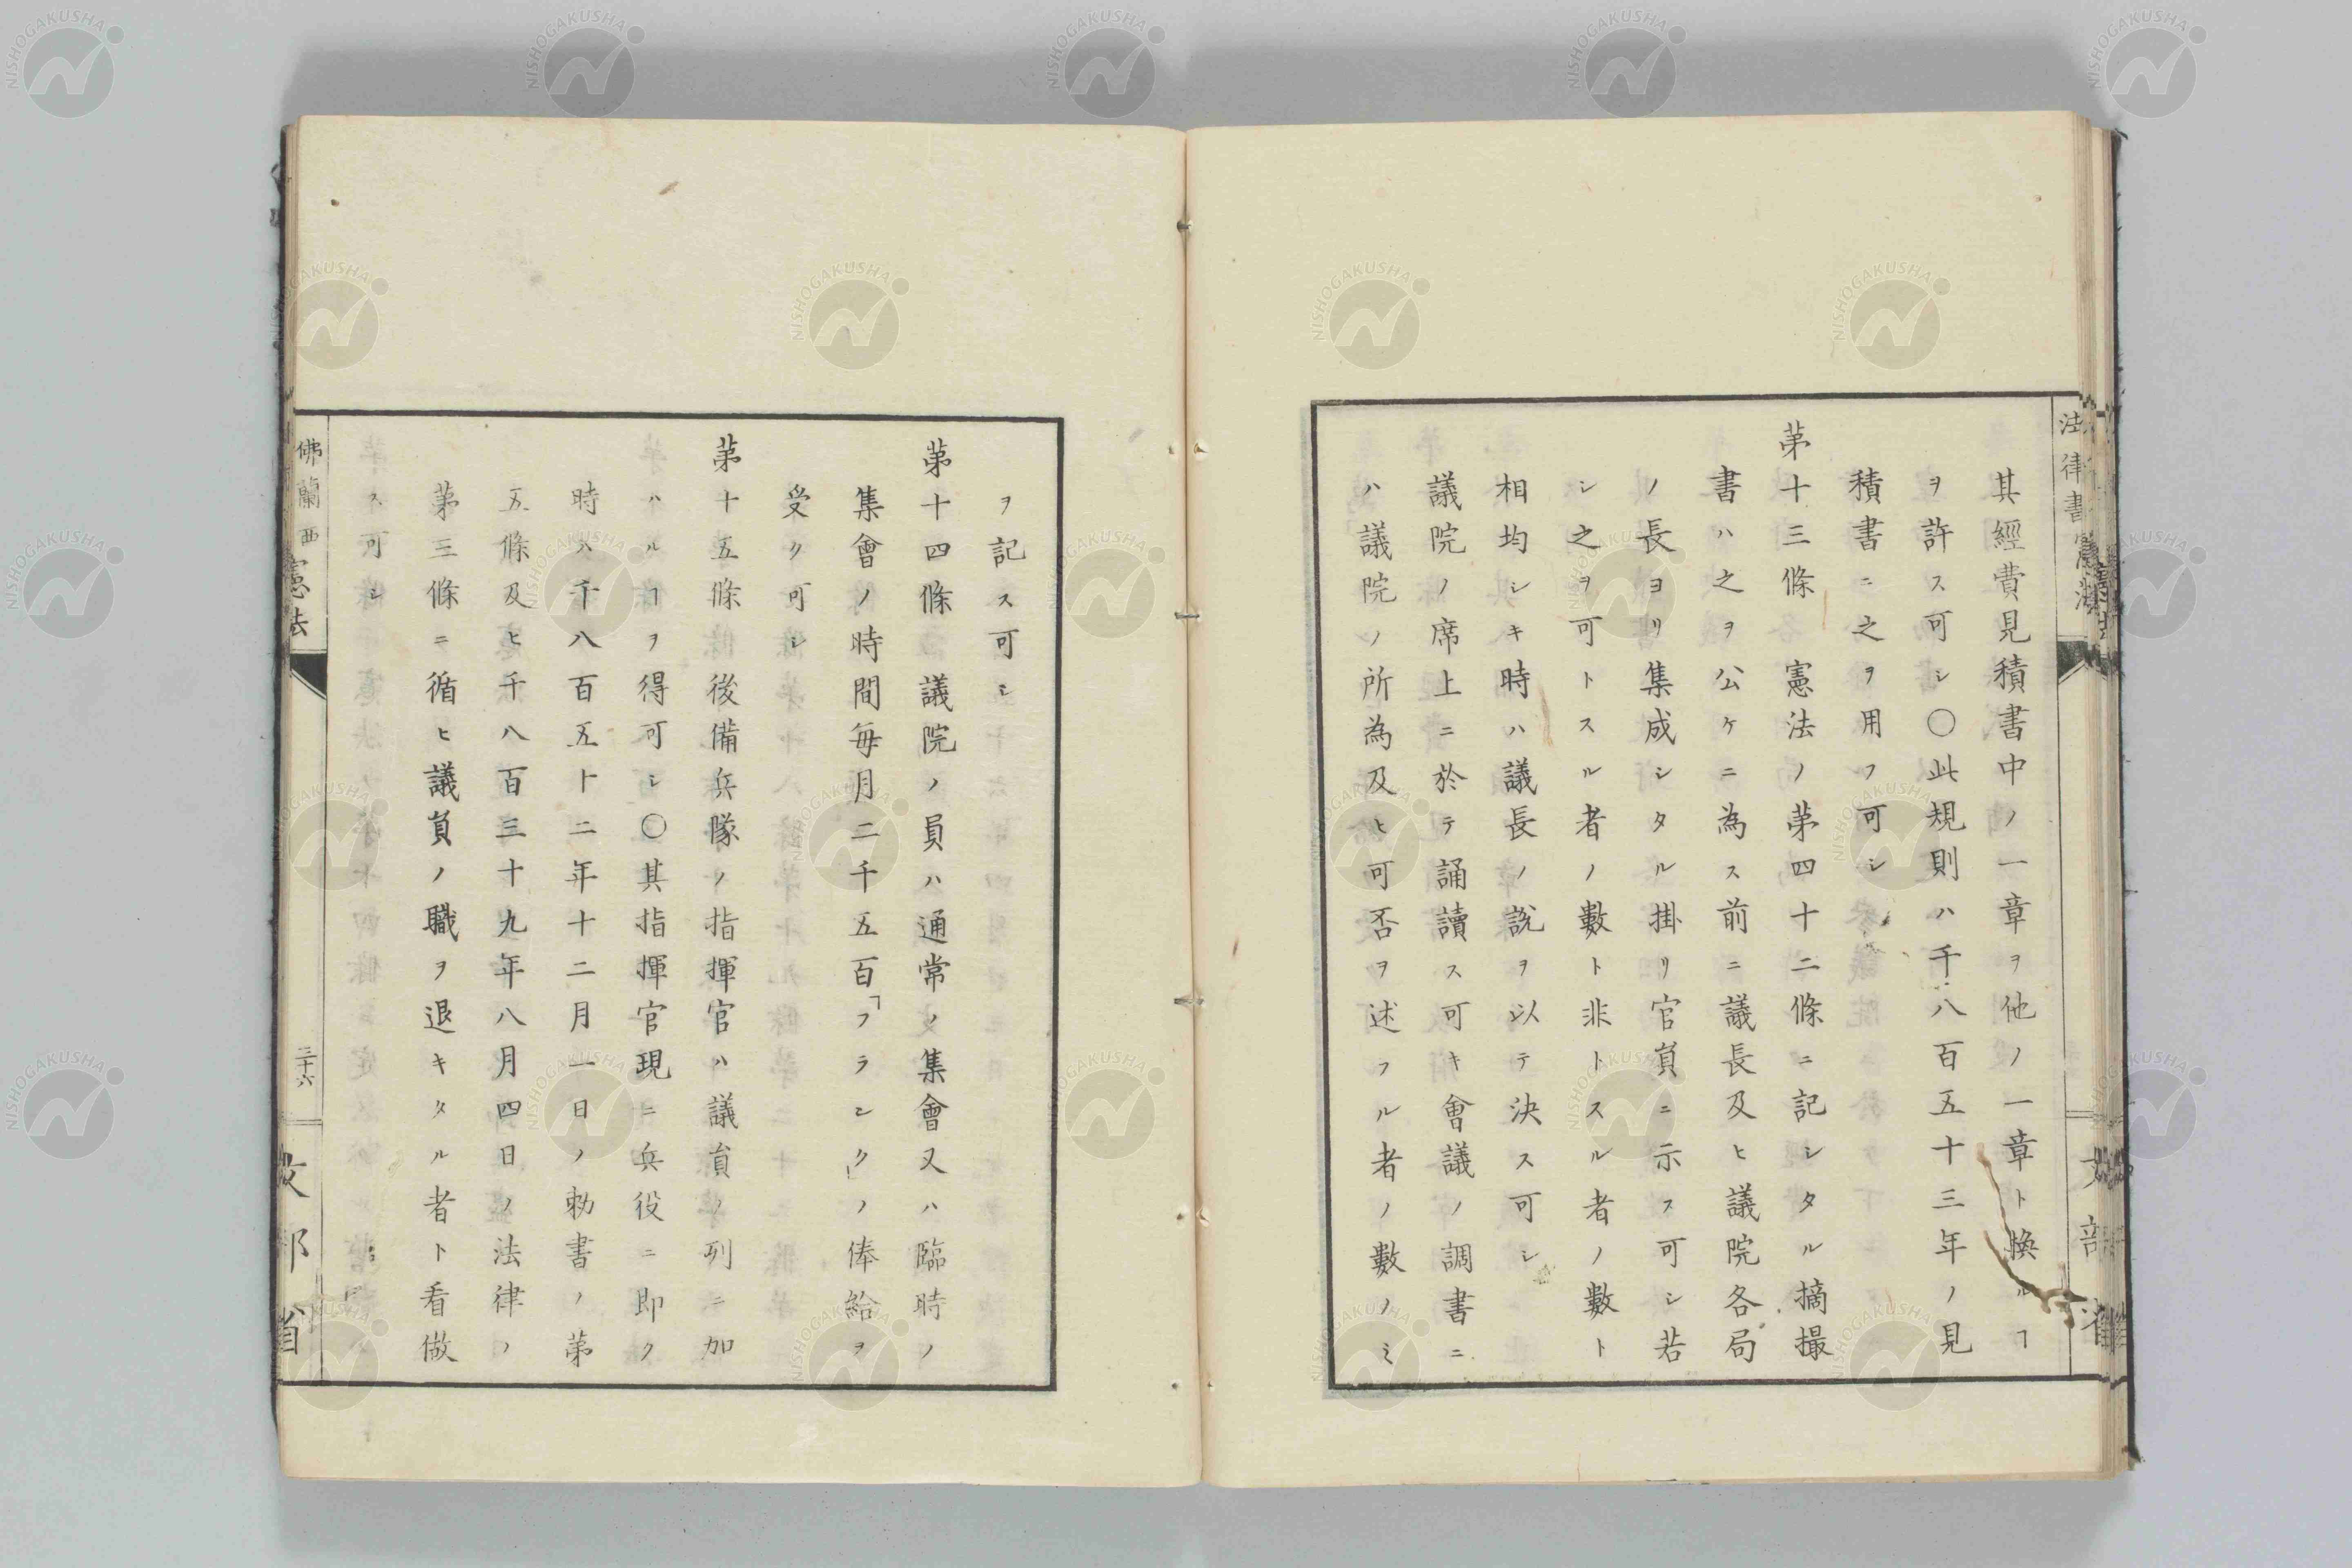 法律書 憲法
文部省
其經費見積書中ノ一章ヲ他ノ一章ト換ルヿ
ヲ許ス可シ〇此規則ハ千八百五十三年ノ見
積書ニ之ヲ用フ可シ
苐十三條 憲法ノ苐四十二條ニ記シタル摘撮
書ハ之ヲ公ケニ為ス前ニ議長及ヒ議院各局
ノ長ヨリ集成シタル掛リ官員ニ示ス可シ若
シ之ヲ可トスル者ノ數ト非トスル者ノ數ト
相均シキ時ハ議長ノ說ヲ以テ決ス可シ
議院ノ席上ニ於テ誦讀ス可キ會議ノ調書ニ
ハ議院ノ所為及ヒ可否ヲ述フル者ノ數ノミ
ヲ記ス可シ
苐十四條 議院ノ員ハ通常ノ集會又ハ臨時ノ
集會ノ時間毎月二千五百「フランク」ノ俸給ヲ
受ク可シ
苐十五條 後備兵隊ノ指揮官ハ議員ノ列ニ加
ハルヿヲ得可シ〇其指揮官現ニ兵役ニ即ク
時ハ千八百五十二年十二月一日ノ勅書ノ苐
五條及ヒ千八百三十九年八月四日ノ法律ノ
苐三條ニ循ヒ議員ノ職ヲ退キタル者ト看做
ス可シ
佛蘭西憲法
三十六
文部省
NISHOGAKUSHA